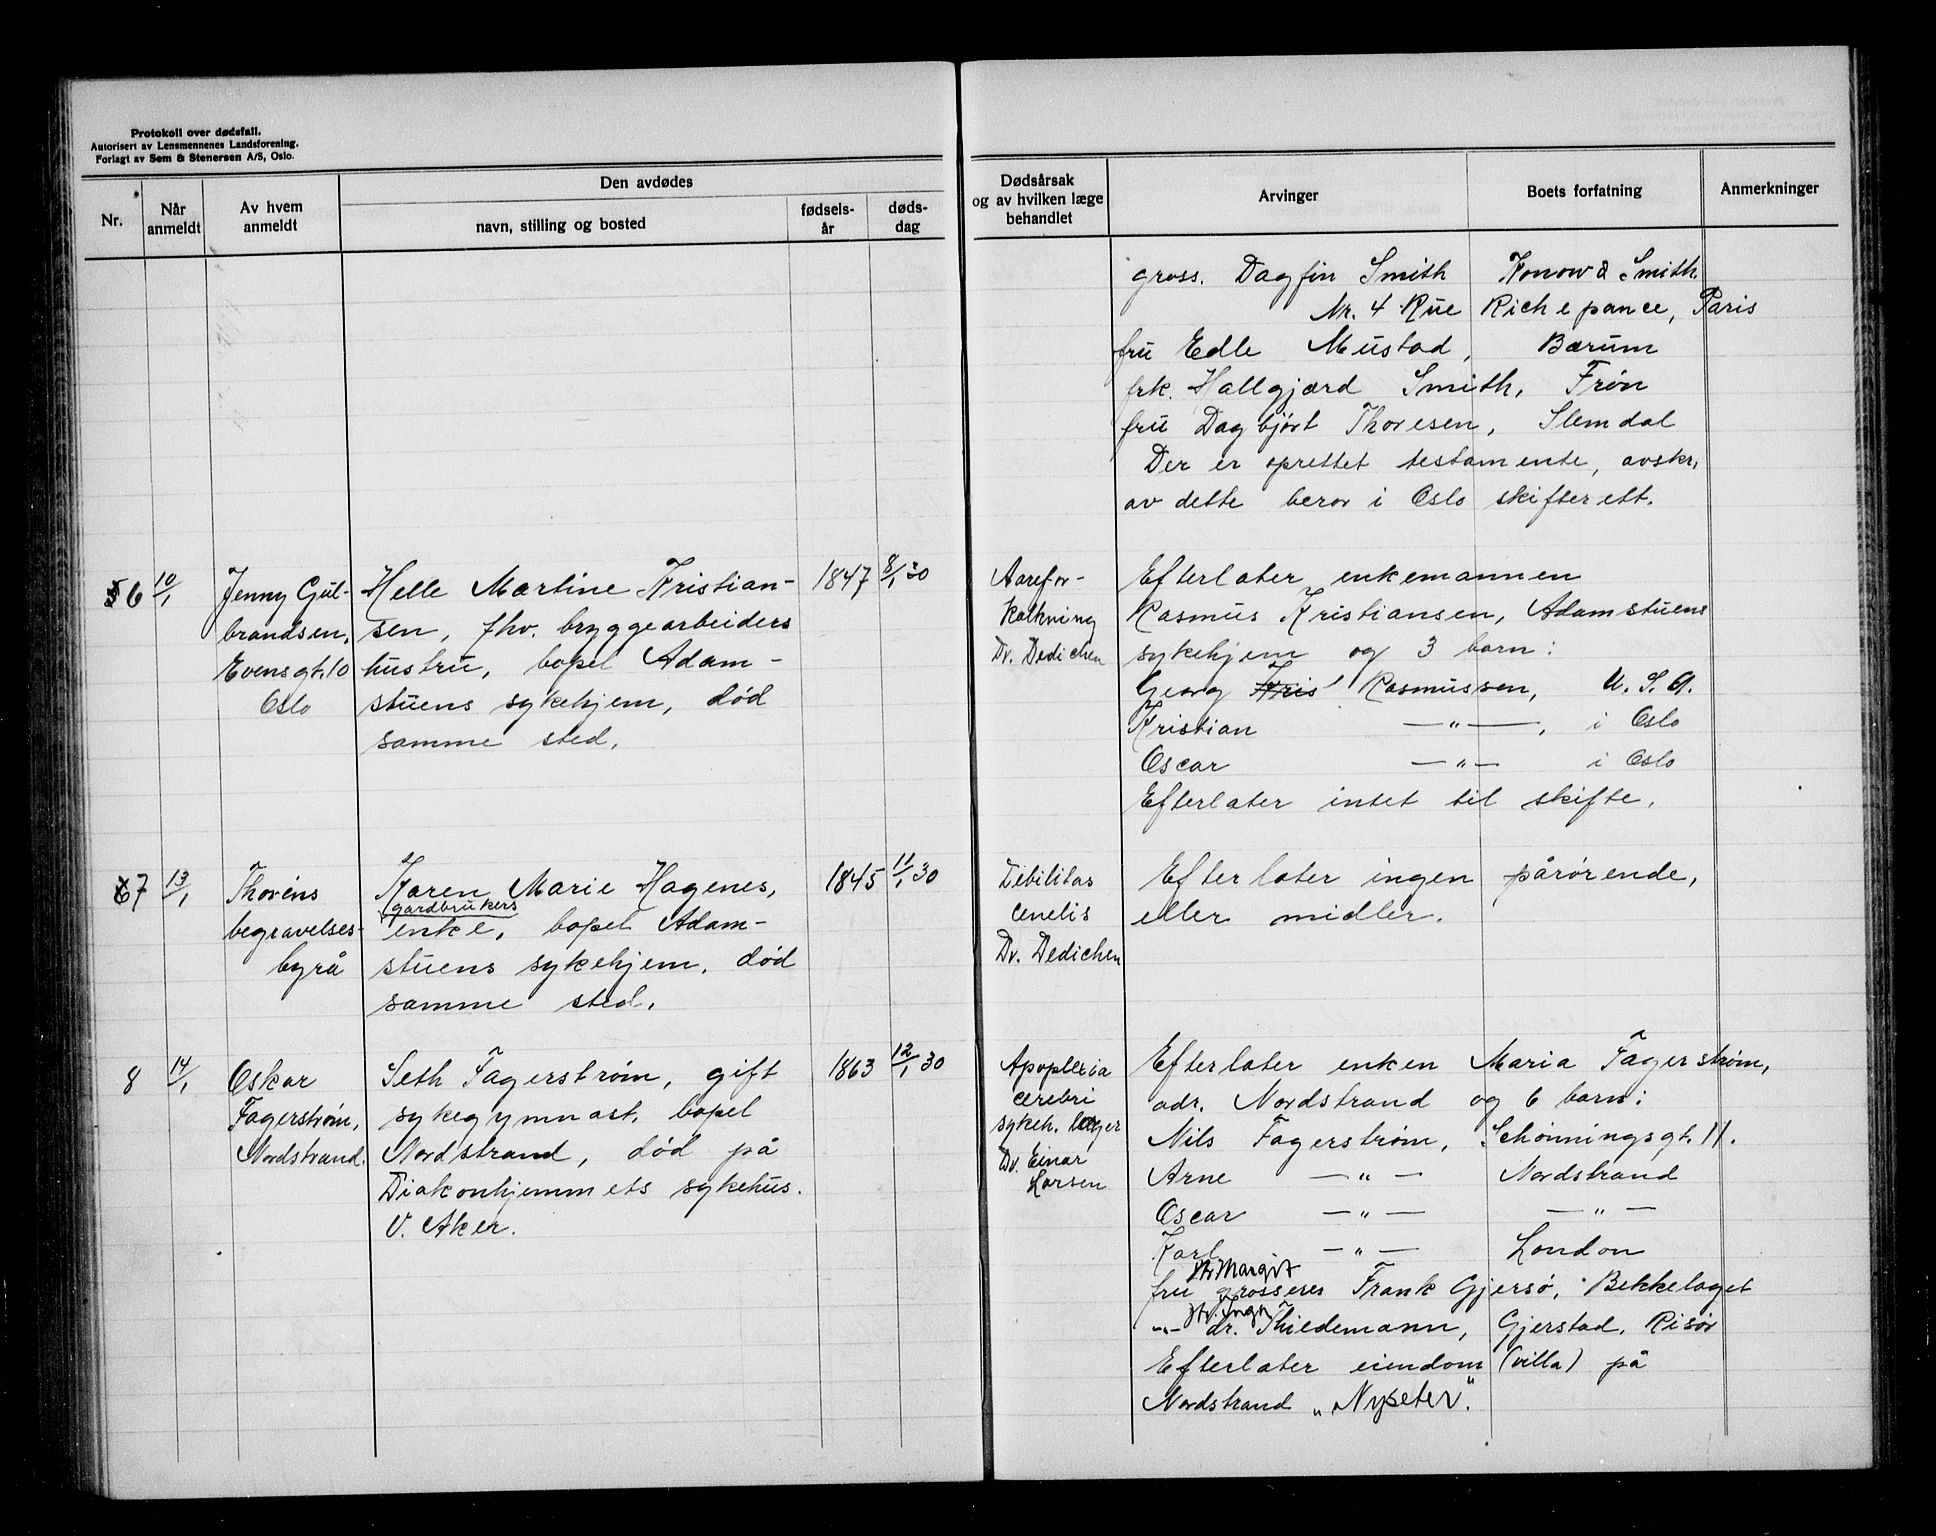 Protokoll over dødsfall.
Autorisert av Lensmennenes Landsforening.
Forlagt av Sem & Stenersen A/S, Oslo.
Nr.
Når anmeldt
Av hvem anmeldt
Den avdødes
navn, stilling og bosted
fødsels-år
døds-dag
Dødsårsak og av hvilken læge behandlet
Arvinger
Boets forfatning
Anmerkninger
gross. Dagfin Smith Konow & Smith
Nr. 4 Rue Richepance, Paris
fru Edle Mustad, Bærum
frk. Hallgjærd Smith, Frøn
fru Dagbjört Thoresen, Slemdal
Der er oprettet testamente, avskr.
av dette beror i Oslo skifterett.
6 10/1
Jenny Gul-
brandsen,
Evensgt. 10
Oslo
Helle Martine Kristian-
sen, fhv. bryggearbeiders
hustru, bopel Adam-
stuens sykehjem, død
samme sted.
1847 8/1 30
Aarefor-
kalkning
Dr. Dedichen
Efterlater enkemannen
Rasmus Kristiansen, Adamstuens
sykehjem og 3 barn:
Georg Kris Rasmussen, U. S. A.
Kristian —"—, i Oslo
Oscar —"— i Oslo
Efterlater intet til skifte.
67 13/1
Thorèns
begravelses-
byrå
Karen Marie Hagenes,
gardbrukers
enke, bopel Adam-
stuens sykehjem, død
samme sted.
1845 11/1 30
Debilitas
cenelis
Dr. Dedichen
Efterlater ingen pårørende,
eller midler.
8 14/1
Oskar
Fagerstrøm,
Nordstrand.
Seth Fagerstrøm, gift
sykegymnast, bopel
Nordstrand, død på
Diakonhjemmets sykehus.
V. Aker.
1863 12/1 30
Apoplexia
cerebri
sykeh. læger
Dr. Einar
Larsen
Efterlater enken Maria Fagerstrøm,
adr. Nordstrand og 6 barn:
Nils Fagerstrøm, Schønningsgt. 11.
Arne —"— Nordstrand
Oscar —"— —"—
Karl —"— London
Margit
fru grosserer Frank Gjersø, Bekkelaget
-"- dr. Thiedemann, Gjerstad, Risør
Efterlater eiendom (villa) på
Nordstrand „Nyseter".